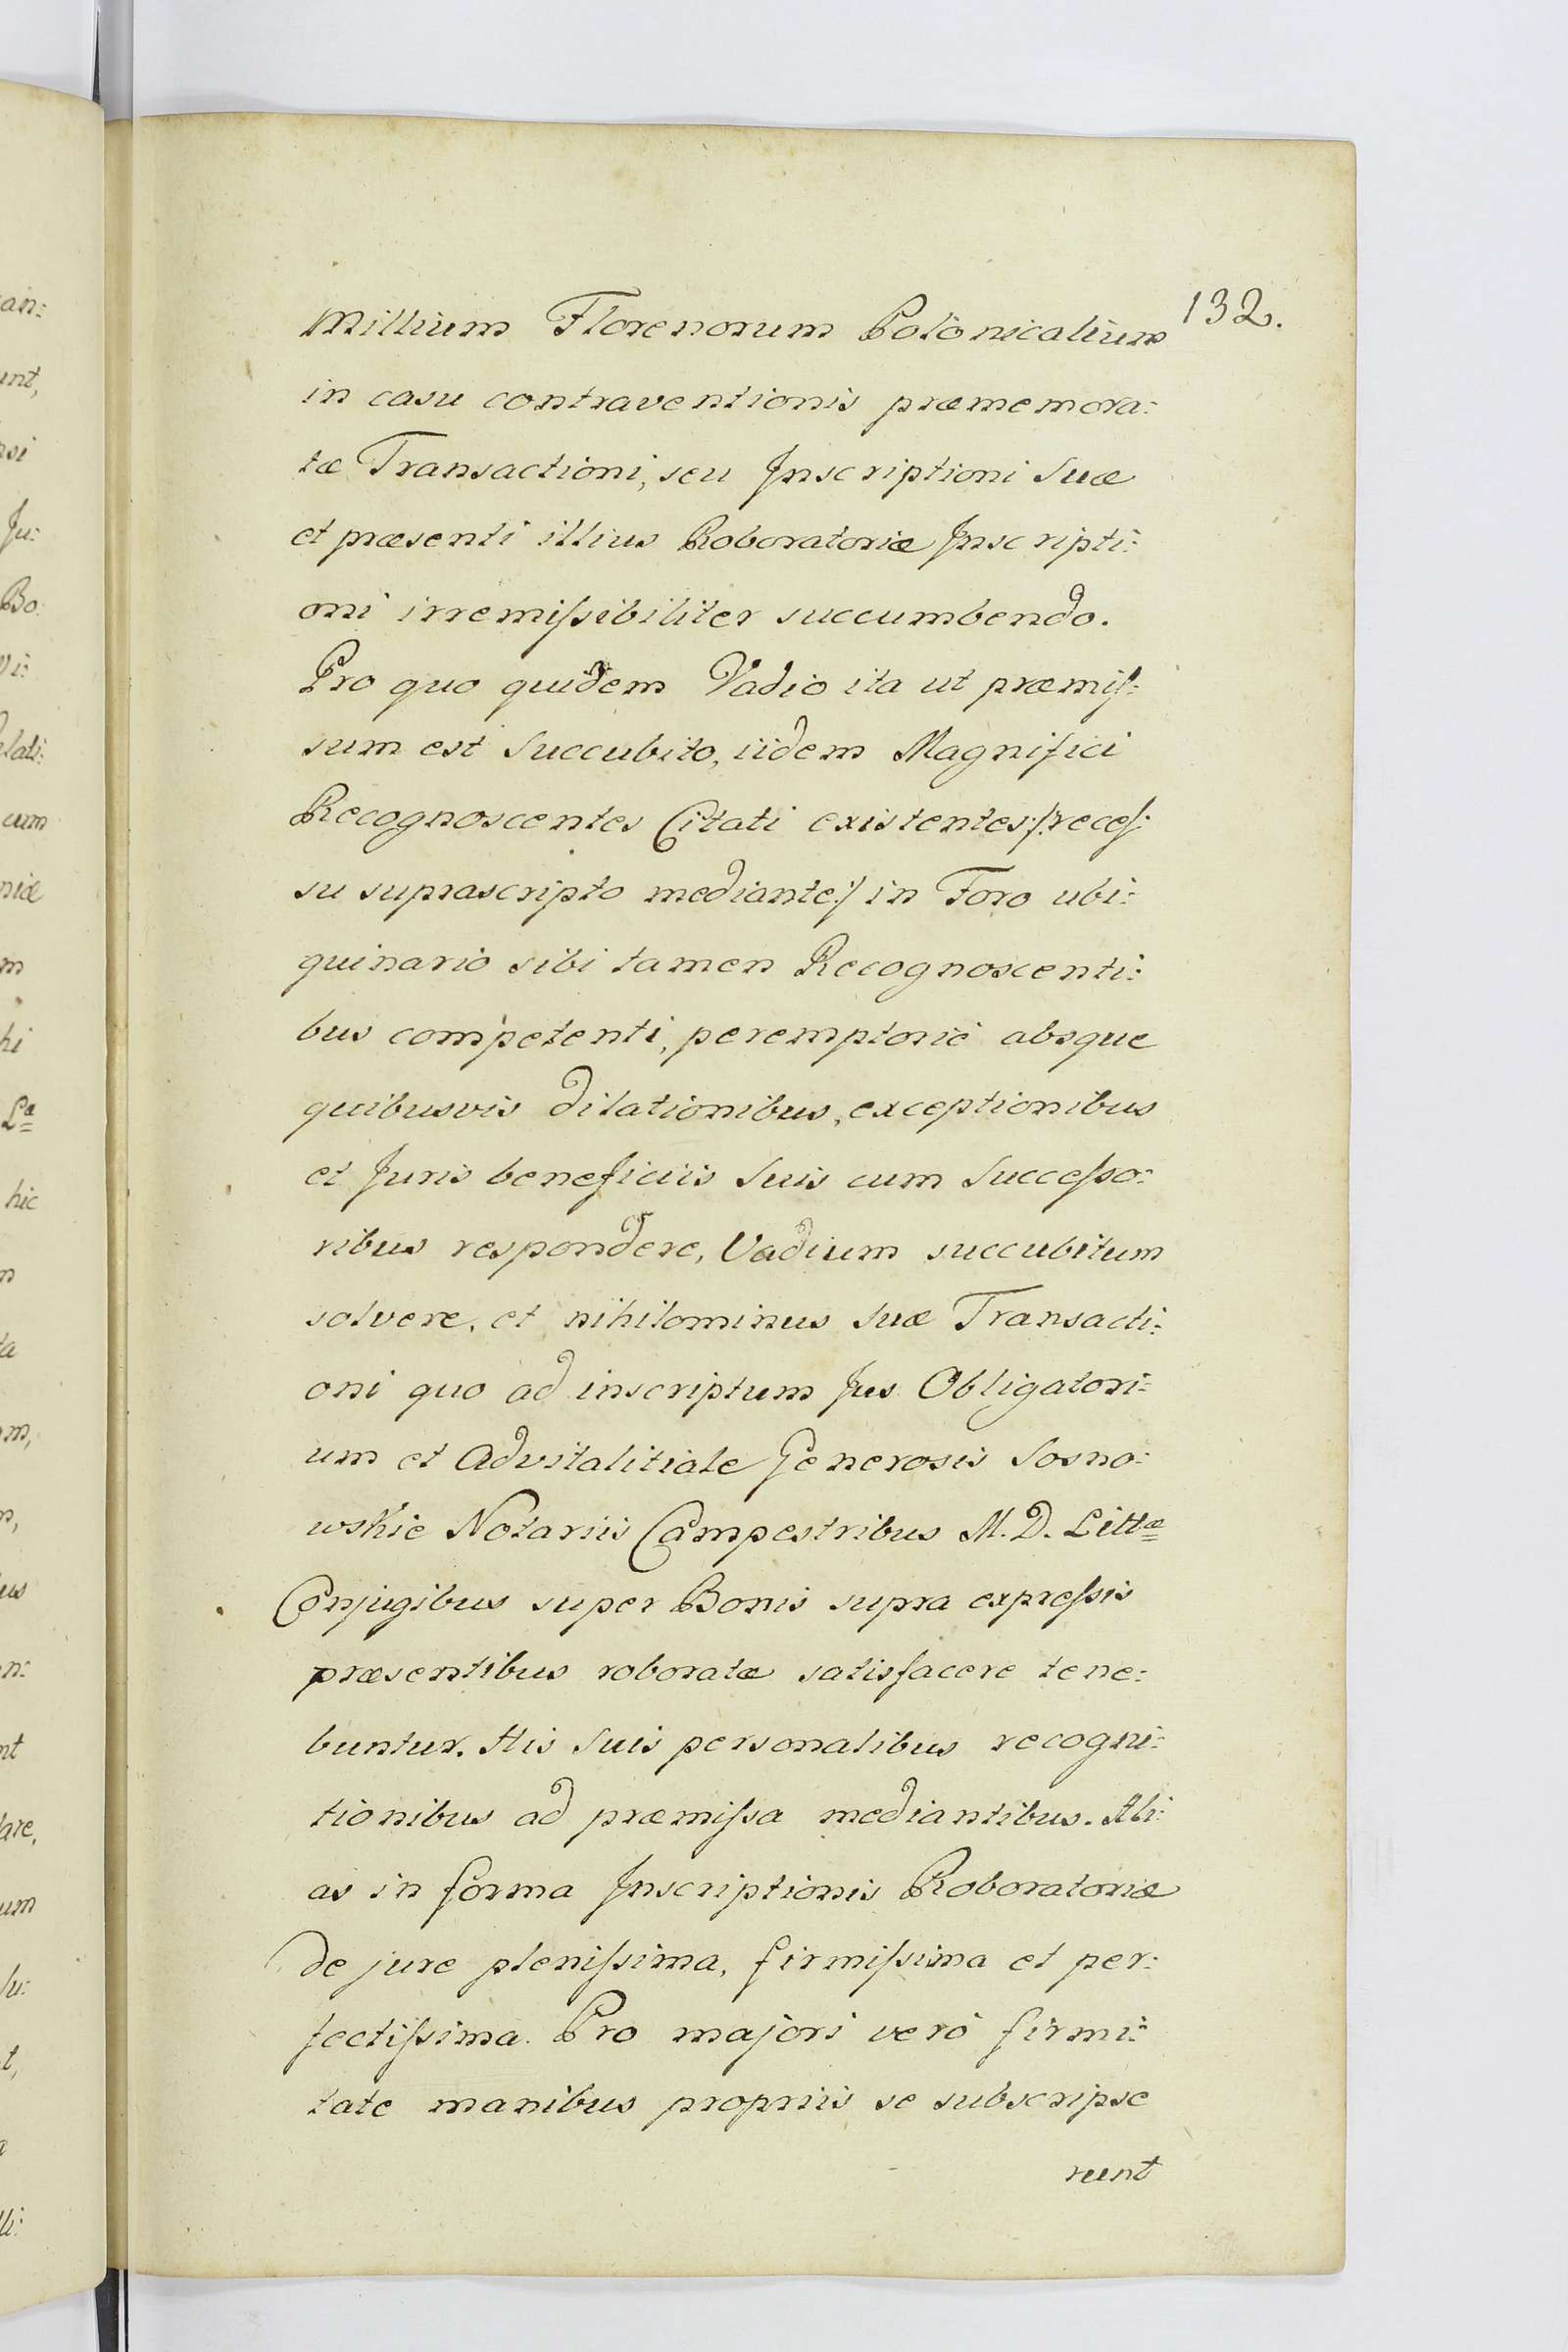 132.
Millium Florenorum Polonicalium
in casu contraventionis præmemora:
tæ Transactioni, seu Inscriptioni Suæ
et præsenti illius Roboratoriæ Inscripti:
oni irremiſsibiliter succumbendo.
Pro quo quidem Vadio ita ut præmiſ:
sum est Succubito, iidem Magnifici
Recognoscentes Citati existentes /:receſ:
su suprascripto mediante:/ in Foro ubi:
quinario sibi tamen Recognoscenti:
bus competenti, peremptorié absque
quibusvis dilationibus, exceptionibus
et Juris beneficiis Suis cum Succeſso:
ribus respondere, Vadium succubitum
solvere, et nihilominus Suæ Transacti:
oni quo ad inscriptum Jus Obligatori:
um et Advitalitiale Generosis Sosno:
wskie Notariis Campestribus M. D. Littæ
Conjugibus super Bonis supra expreſsis
præsentibus roboratæ satisfacere tene:
buntur. His Suis personalibus recogni:
tionibus ad præmiſsa mediantibus. Ali:
as in forma Inscriptionis Roboratoriæ
de jure pleniſsima, firmiſsima et per:
fectiſsima. Pro majori veró firmi:
tate manibus propriis se subscripse
runt
an:
unt,
nsi
Ju:
Bo:
vi:
lati:
cum
niæ
m
hi
Læ
hic
n
ta
m,
n,
us
n:
nt
dare,
um
t,
a